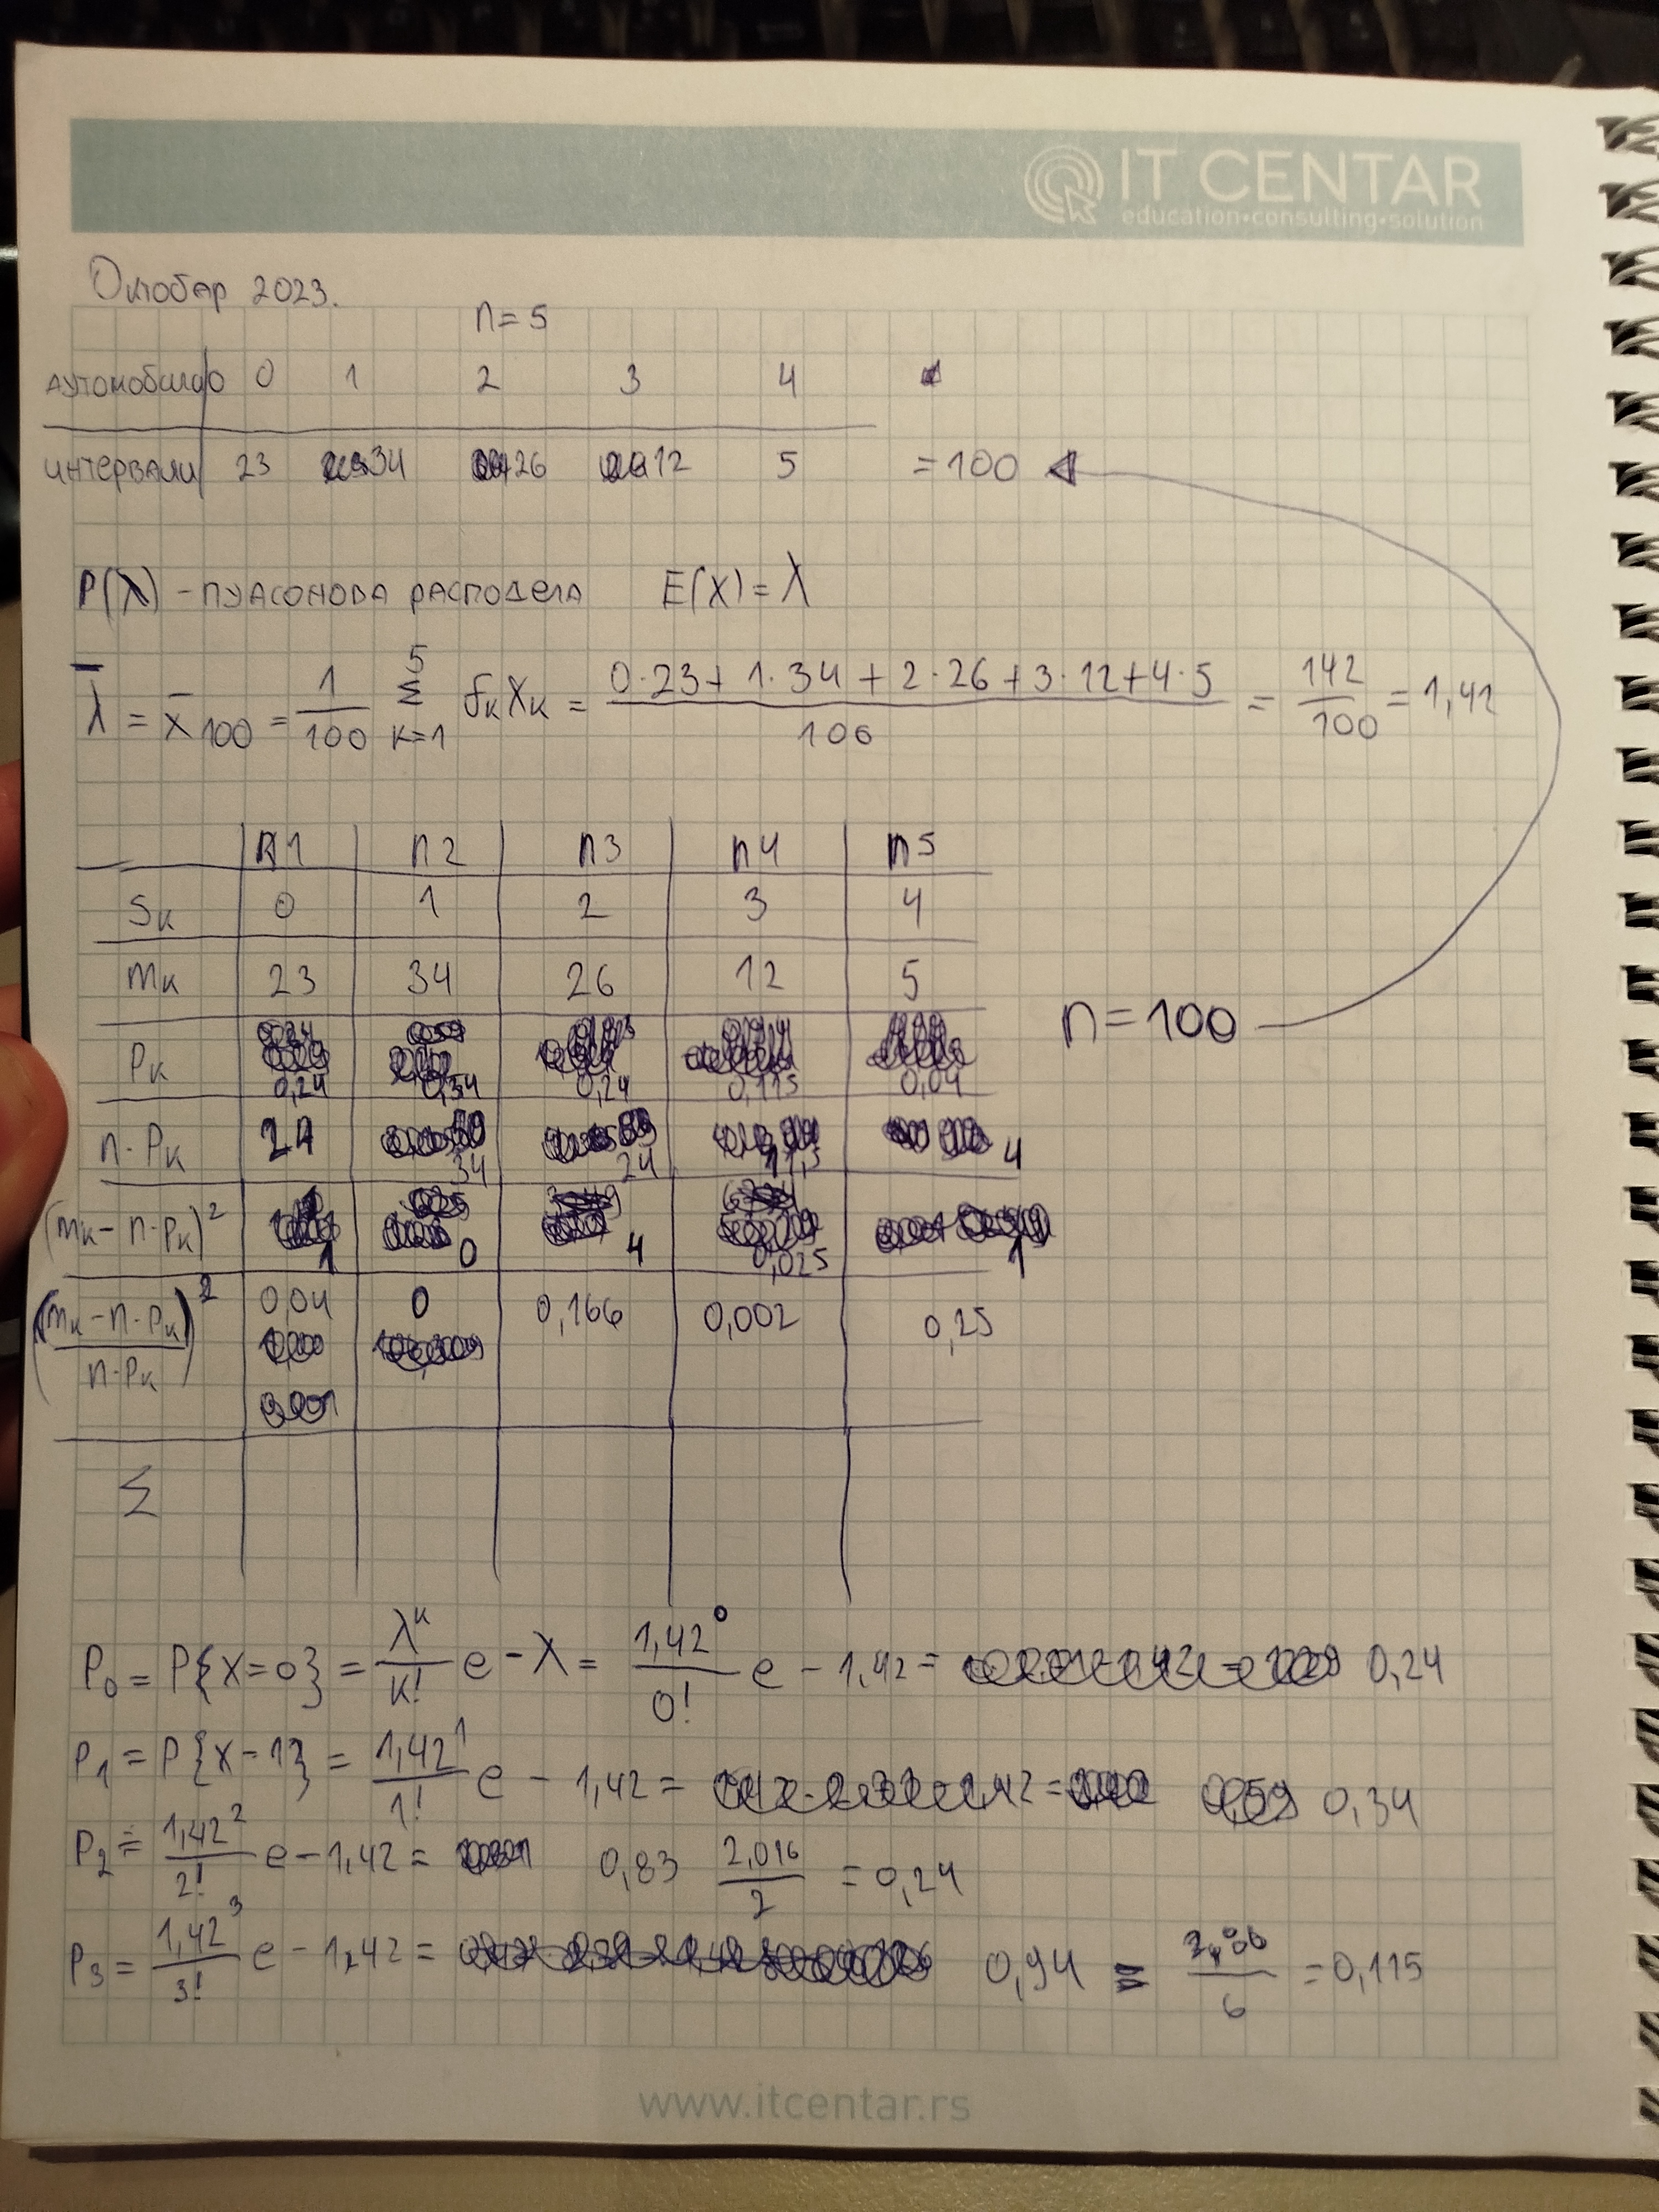 IT CENTAR
education•consulting•solution
Октобар 2023.
n=5
аутомобила 0 1 2 3 4
интервали 23 34 26 12 5 =100
P(λ) - пуасонова расподела E(X)=λ
λ̄ = x̄100 = 1/100 5 Σ k=1 fk xk = 0·23+1·34+2·26+3·12+4·5 / 100 = 142/100 = 1,42
n1 n2 n3 n4 n5
Sk 0 1 2 3 4
mk 23 34 26 12 5
n=100
Pk 0,24 0,34 0,24 0,115 0,04
n·Pk 24 34 24 11,5 4
(mk-n·Pk)² 1 0 4 0,025 1
(mk-n·Pk / n·Pk)² 0,04 0 0,166 0,002 0,25
Σ
P0 = P{X=0} = λ^k/k! e-λ = 1,42^0/0! e-1,42 = 0,24
P1 = P{X=1} = 1,42^1/1! e-1,42 = 0,34
P2 = 1,42^2/2! e-1,42 = 0,83 2,016/2 = 0,24
P3 = 1,42^3/3! e-1,42 = 0,94 = /6 = 0,115
www.itcentar.rs